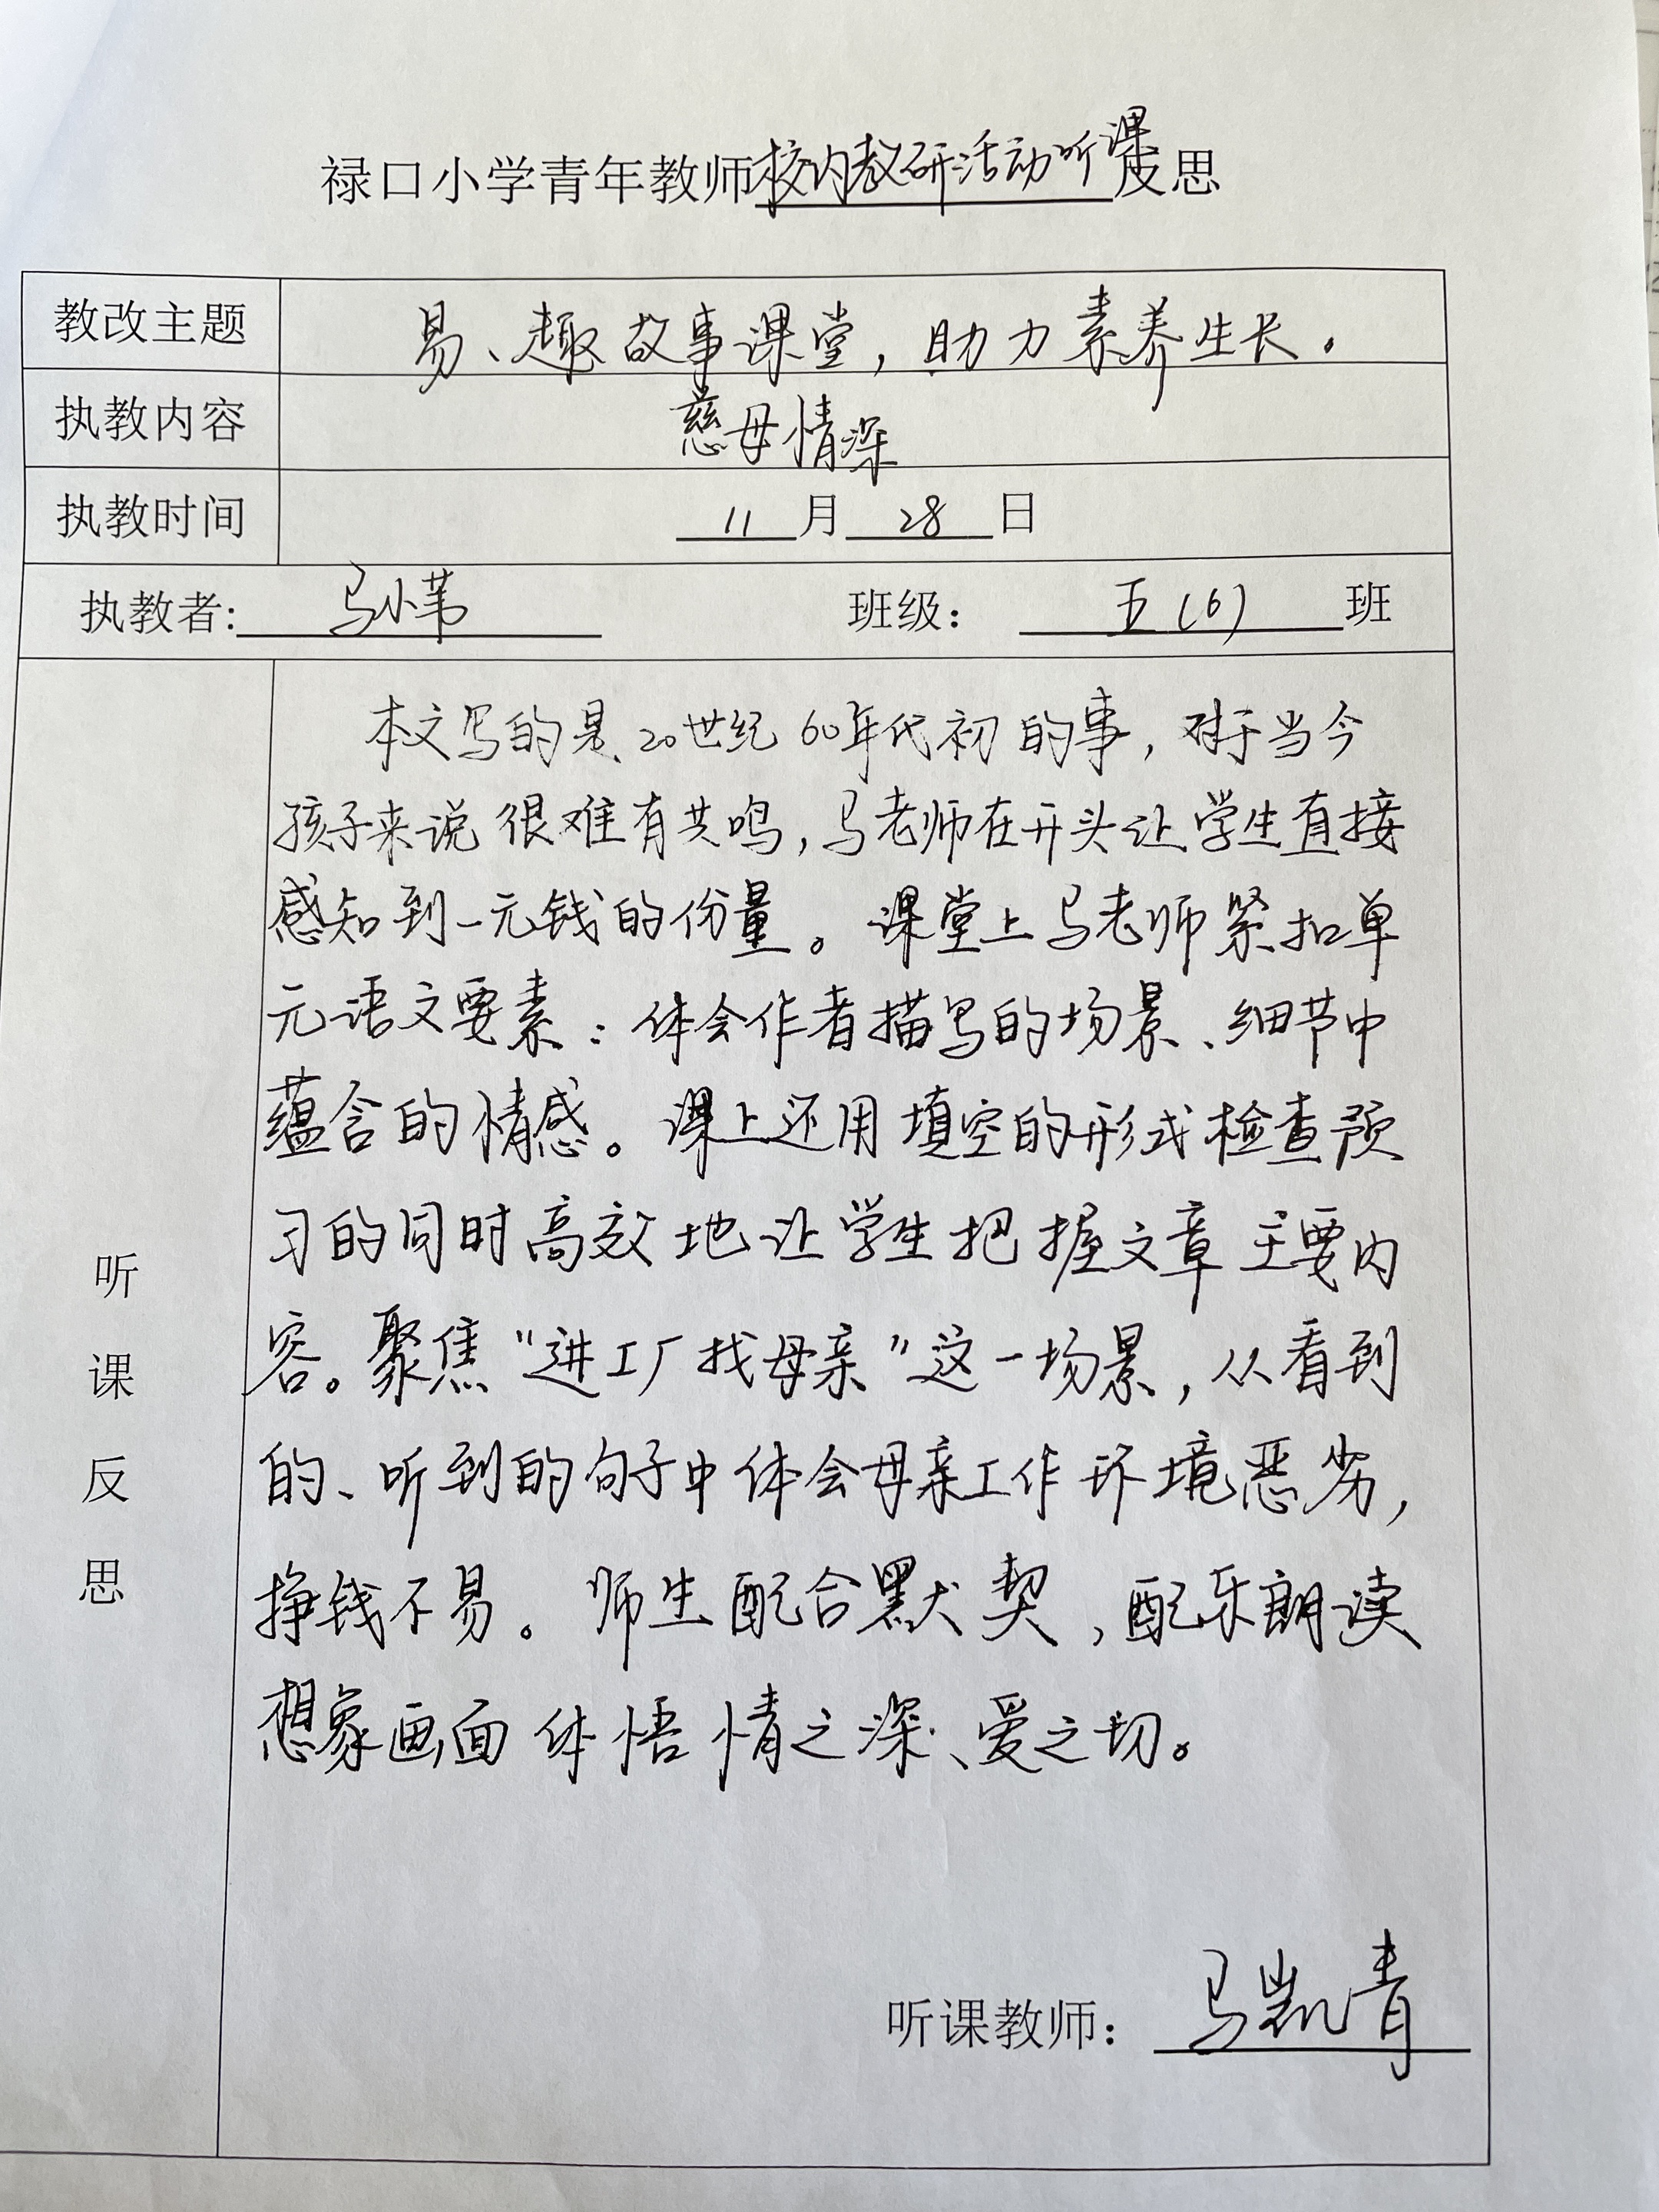 禄口小学青年教师校内教研活动听课反思
教改主题 易、趣故事课堂，助力素养生长。
执教内容 慈母情深
执教时间 11月28日
执教者：马小苇 班级：五（6）班
听课反思
本文写的是20世纪60年代初的事，对于当今
孩子来说很难有共鸣，马老师在开头让学生直接
感知到一元钱的份量。课堂上马老师紧扣单
元语文要素：体会作者描写的场景、细节中
蕴含的情感。课上还用填空的形式检查预
习的同时高效地让学生把握文章主要内
容。聚焦“进工厂找母亲”这一场景，从看到
的、听到的句子中体会母亲工作环境恶劣，
挣钱不易。师生配合默契，配乐朗读
想象画面体悟情之深、爱之切。
听课教师：马凯青